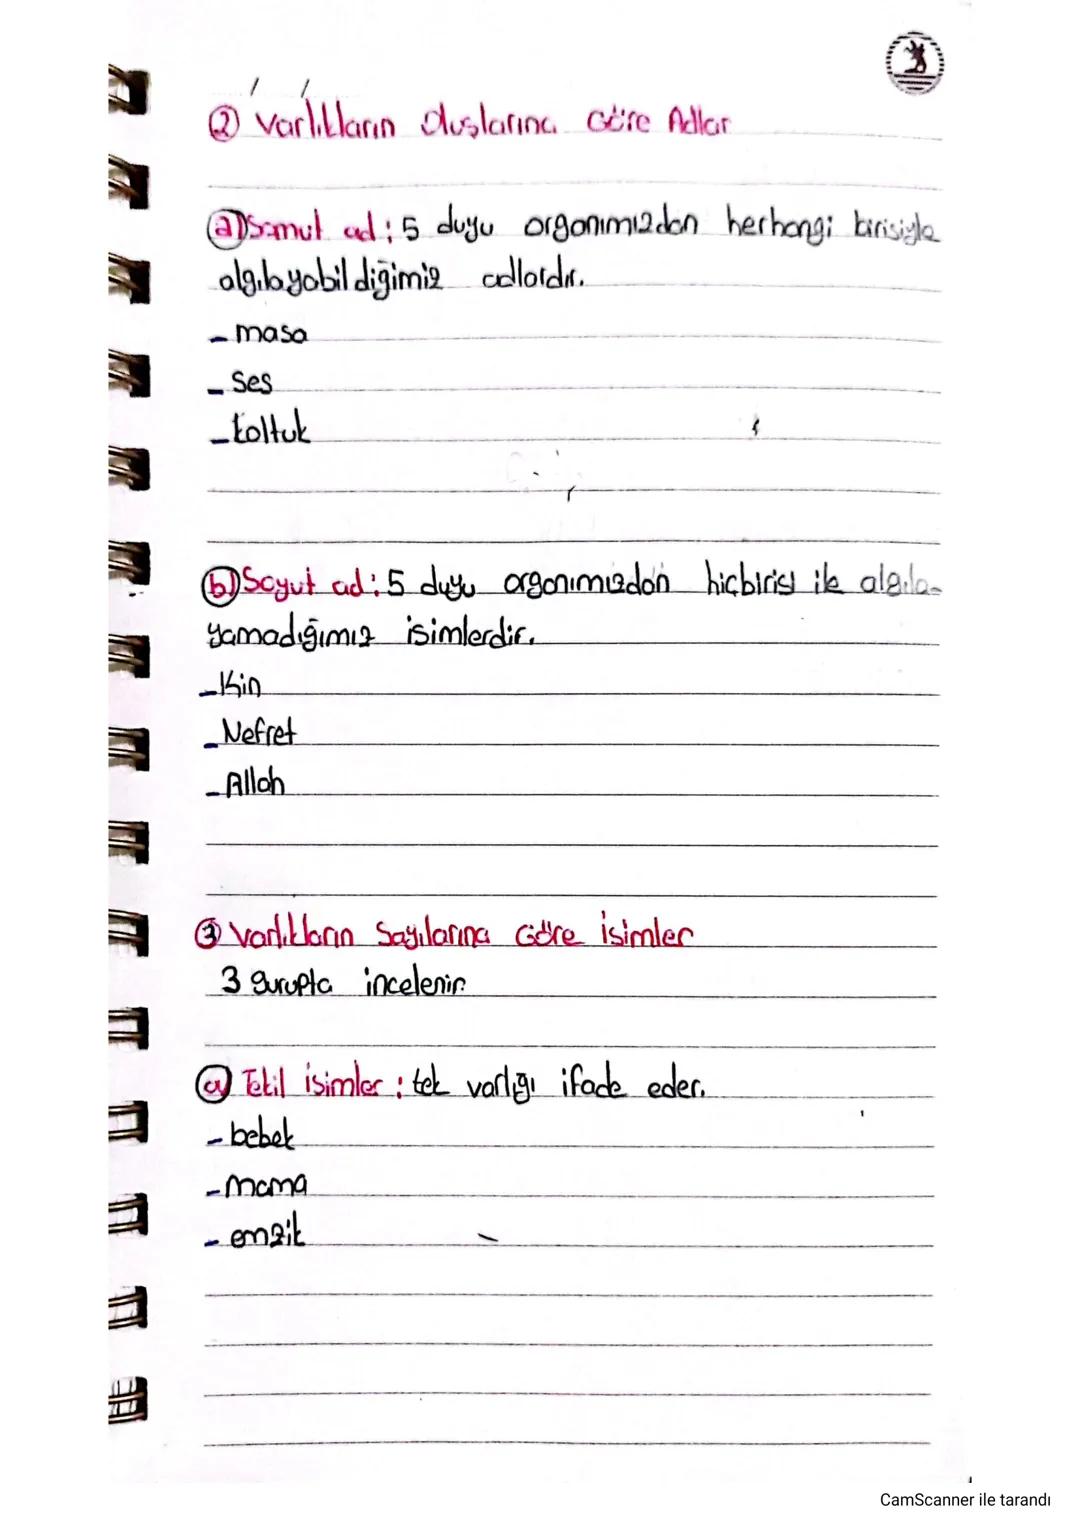 ② Varlıkların Oluşlarına Göre Adlar
a) Somut ad : 5 duyu organımızdan herhangi birisiyle
algılayabildiğimiz adlardır.
- masa
- Ses
- koltuk
b) Soyut ad : 5 duyu organımızdan hiçbirisi ile algıla-
yamadığımız isimlerdir.
- Kin
- Nefret
- Allah
③ Varlıkların Sayılarına Göre isimler
3 gurupta incelenir.
a) Tekil isimler : tek varlığı ifade eder.
- bebek
- mama
- emzik
CamScanner ile tarandı